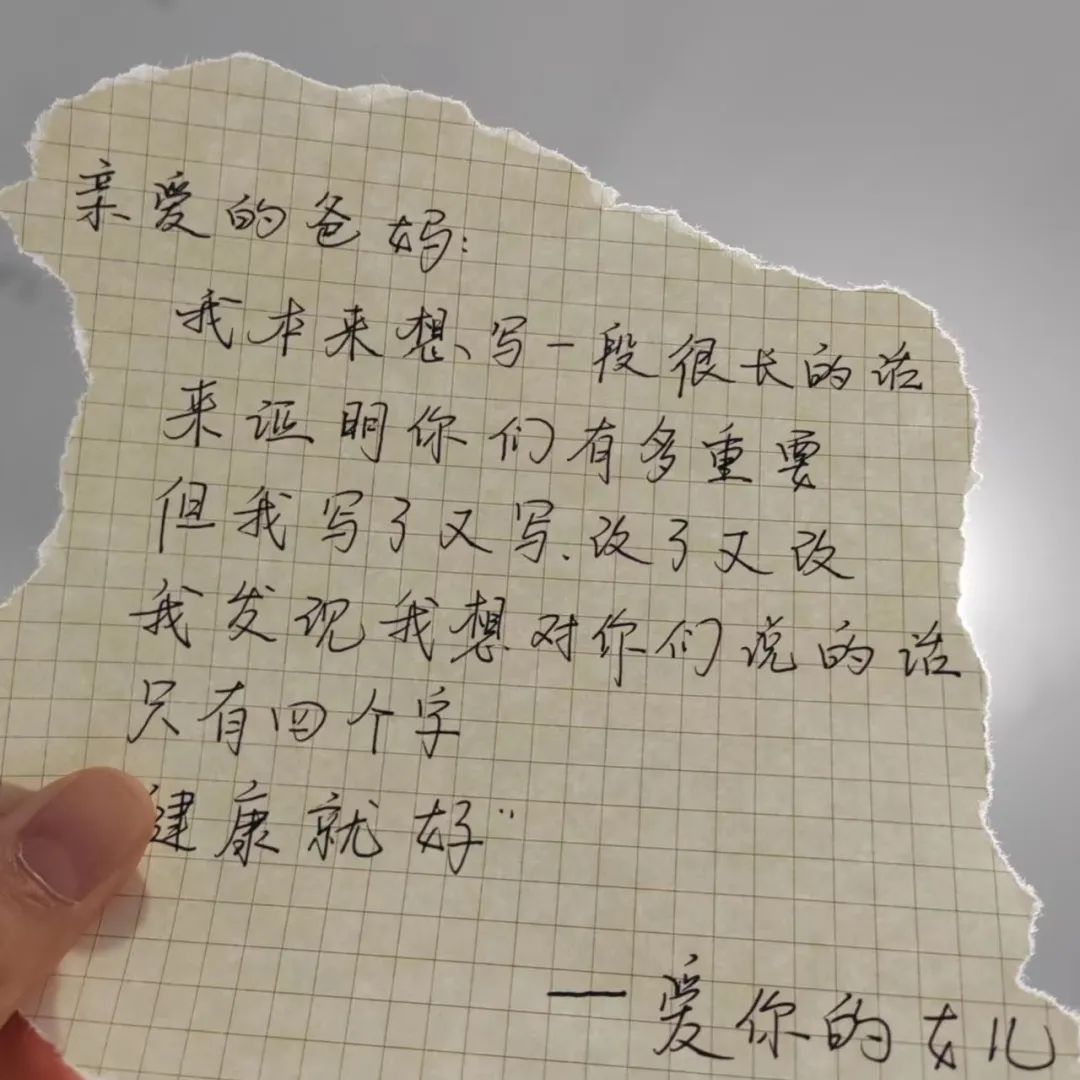 亲爱的爸妈:
我本来想写一段很长的话
来证明你们有多重要
但我写了又写.改了又改
我发现我想对你们说的话
只有四个字
健康就好"
——爱你的女儿